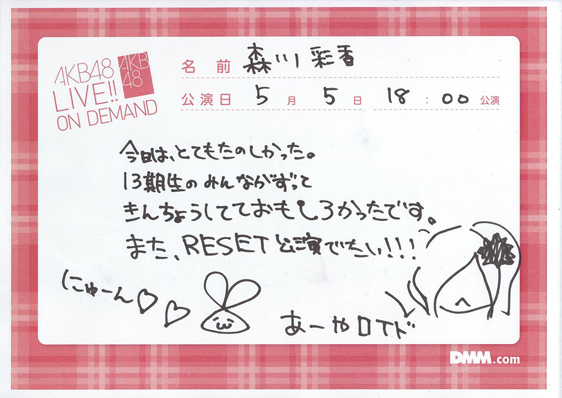 AKB48
LIVE!!
ON DEMAND
AKB
48
名前 森川彩香
公演日 5月5日 18:00公演
今日は、とてもたのしかった。
13期生のみんながずっと
きんちょうしてておもしろかったです。
また、RESET公演でたい!!!
にゅーん♡♡
あーやロイド
DMM.com